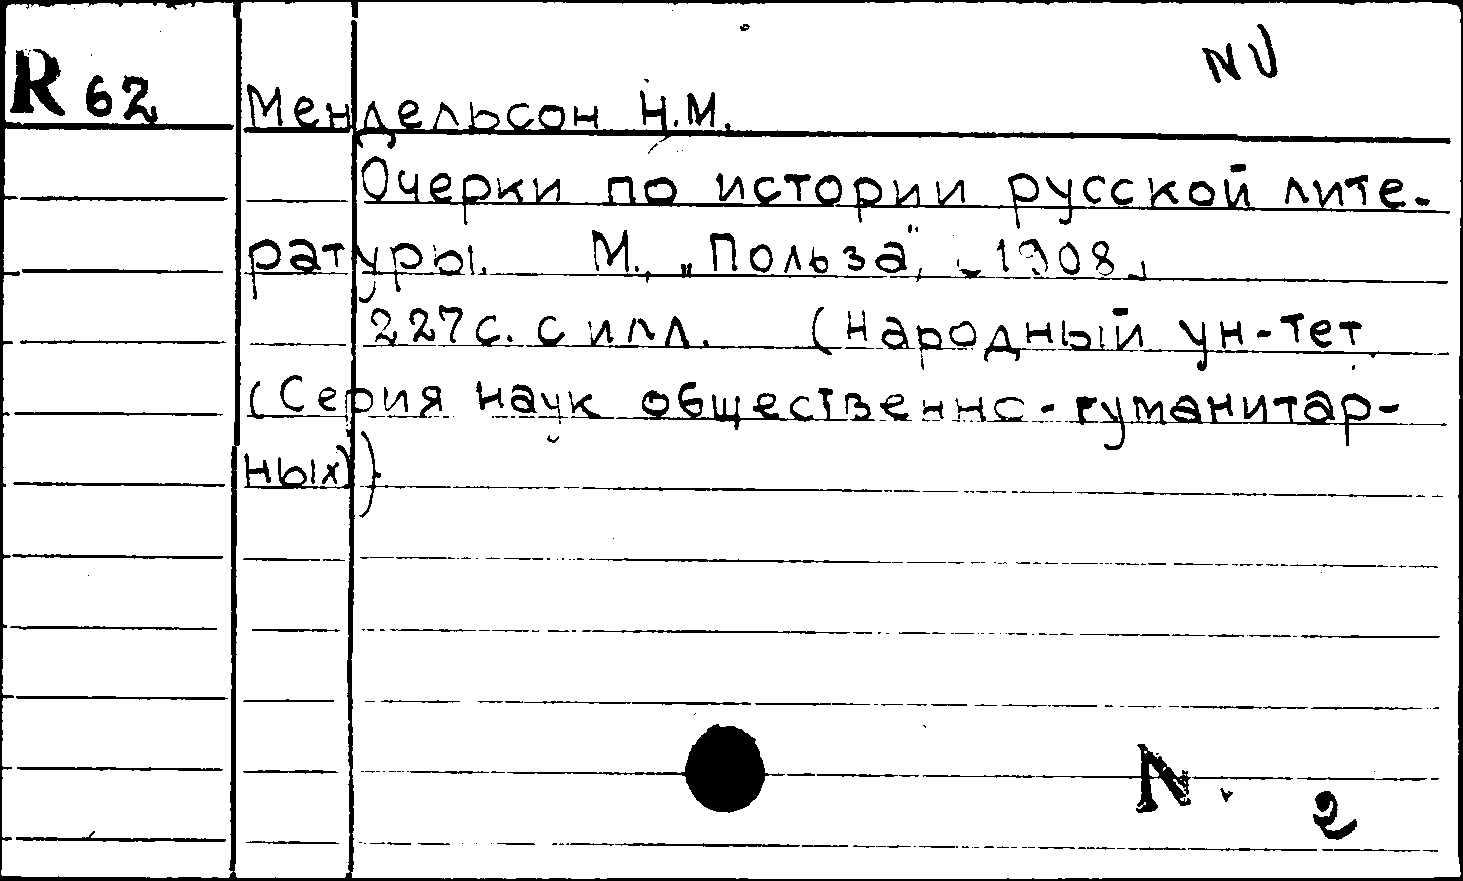 NU
R 62 Мендельсон Н.М.
Очерки по истории русской лите-
ратуры. М., „Польза“, 1908.
227с. с илл. (Народный ун-тет
(Серия наук общественно-гуманитар-
ных))
N. 2